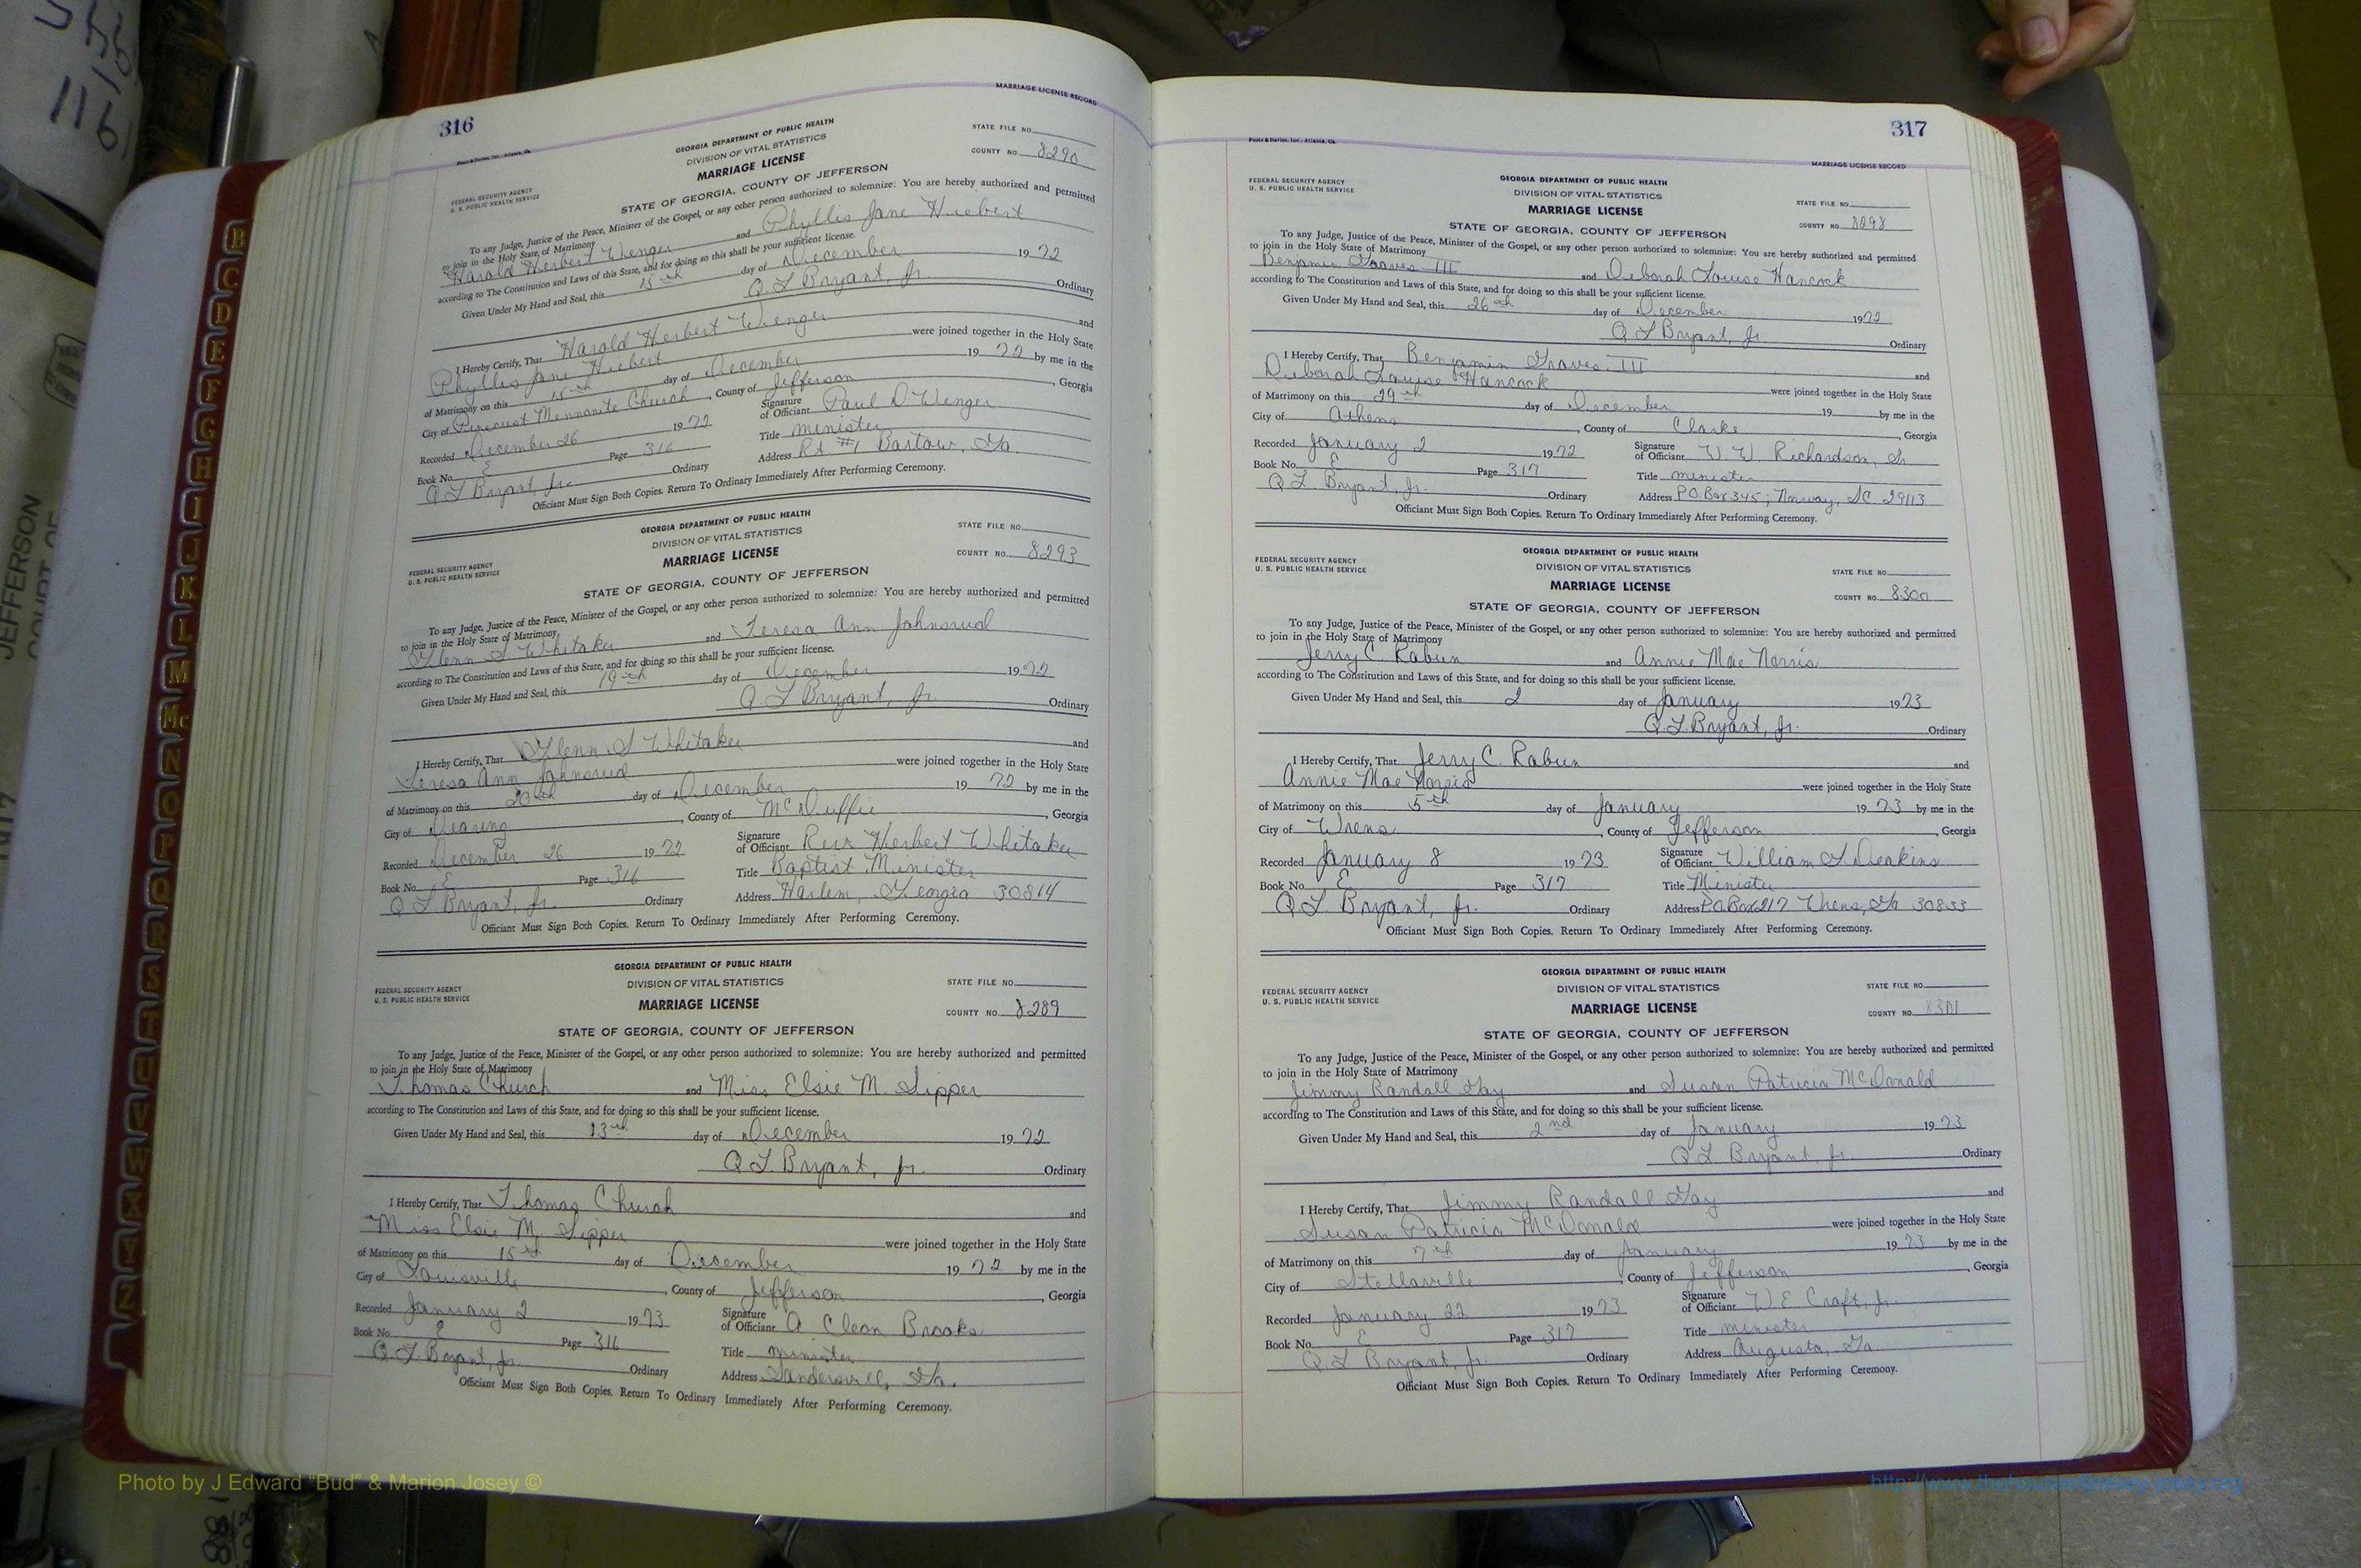 316
MARRIAGE LICENSE RECORD
Foote & Davies, Inc., Atlanta, Ga.
GEORGIA DEPARTMENT OF PUBLIC HEALTH
DIVISION OF VITAL STATISTICS
MARRIAGE LICENSE
STATE FILE NO.
COUNTY NO. 8290
FEDERAL SECURITY AGENCY
U. S. PUBLIC HEALTH SERVICE
STATE OF GEORGIA, COUNTY OF JEFFERSON
To any Judge, Justice of the Peace, Minister of the Gospel, or any other person authorized to solemnize: You are hereby authorized and permitted
to join in the Holy State of Matrimony
Harold Herbert Wenger and Phyllis Jane Hiebert
according to The Constitution and Laws of this State, and for doing so this shall be your sufficient license.
Given Under My Hand and Seal, this 15th day of December 1972
Q L Bryant, Jr. Ordinary
I Hereby Certify, That Harold Herbert Wenger and
Phyllis Jane Hiebert were joined together in the Holy State
of Matrimony on this 15th day of December 1972 by me in the
City of Pinecrest Mennonite Church, County of Jefferson, Georgia
Recorded December 26 1972 Signature of Officiant Paul D Wenger
Book No. E Page 316 Title minister
Q L Bryant, Jr. Ordinary Address Rt #1 Bartow, Ga.
Officiant Must Sign Both Copies. Return To Ordinary Immediately After Performing Ceremony.
GEORGIA DEPARTMENT OF PUBLIC HEALTH
DIVISION OF VITAL STATISTICS
MARRIAGE LICENSE
STATE FILE NO.
COUNTY NO. 8293
FEDERAL SECURITY AGENCY
U. S. PUBLIC HEALTH SERVICE
STATE OF GEORGIA, COUNTY OF JEFFERSON
To any Judge, Justice of the Peace, Minister of the Gospel, or any other person authorized to solemnize: You are hereby authorized and permitted
to join in the Holy State of Matrimony
Glenn S Whitaker and Teresa Ann Johnsrud
according to The Constitution and Laws of this State, and for doing so this shall be your sufficient license.
Given Under My Hand and Seal, this 19th day of December 1972
Q. L Bryant, Jr. Ordinary
I Hereby Certify, That Glenn S Whitaker and
Teresa Ann Johnsrud were joined together in the Holy State
of Matrimony on this 20th day of December 1972 by me in the
City of Dearing, County of McDuffie, Georgia
Recorded December 26 1972 Signature of Officiant Rev. Herbert Whitaker
Book No. E Page 316 Title Baptist Minister
Q L Bryant, Jr. Ordinary Address Harlem, Georgia 30814
Officiant Must Sign Both Copies. Return To Ordinary Immediately After Performing Ceremony.
GEORGIA DEPARTMENT OF PUBLIC HEALTH
DIVISION OF VITAL STATISTICS
MARRIAGE LICENSE
STATE FILE NO.
COUNTY NO. 8289
FEDERAL SECURITY AGENCY
U. S. PUBLIC HEALTH SERVICE
STATE OF GEORGIA, COUNTY OF JEFFERSON
To any Judge, Justice of the Peace, Minister of the Gospel, or any other person authorized to solemnize: You are hereby authorized and permitted
to join in the Holy State of Matrimony
Thomas Church and Miss Elsie M. Sipper
according to The Constitution and Laws of this State, and for doing so this shall be your sufficient license.
Given Under My Hand and Seal, this 13th day of December 1972
Q L Bryant, Jr. Ordinary
I Hereby Certify, That Thomas Church and
Miss Elsie M. Sipper were joined together in the Holy State
of Matrimony on this 15th day of December 1972 by me in the
City of Louisville, County of Jefferson, Georgia
Recorded January 2 1973 Signature of Officiant A Cleon Brooks
Book No. E Page 316 Title minister
Q. L Bryant, Jr. Ordinary Address Sandersville, Ga.
Officiant Must Sign Both Copies. Return To Ordinary Immediately After Performing Ceremony.
317
Foote & Davies, Inc., Atlanta, Ga.
MARRIAGE LICENSE RECORD
GEORGIA DEPARTMENT OF PUBLIC HEALTH
DIVISION OF VITAL STATISTICS
MARRIAGE LICENSE
STATE FILE NO.
COUNTY NO. 8298
FEDERAL SECURITY AGENCY
U. S. PUBLIC HEALTH SERVICE
STATE OF GEORGIA, COUNTY OF JEFFERSON
To any Judge, Justice of the Peace, Minister of the Gospel, or any other person authorized to solemnize: You are hereby authorized and permitted
to join in the Holy State of Matrimony
Benjamin Graves III and Deborah Louise Hancock
according to The Constitution and Laws of this State, and for doing so this shall be your sufficient license.
Given Under My Hand and Seal, this 26th day of December 1972
Q L Bryant, Jr. Ordinary
I Hereby Certify, That Benjamin Graves III and
Deborah Louise Hancock were joined together in the Holy State
of Matrimony on this 29th day of December 19 by me in the
City of Athens, County of Clarke, Georgia
Recorded January 2 1972 Signature of Officiant W. W. Richardson, Sr
Book No. E Page 317 Title minister
Q L. Bryant, Jr. Ordinary Address P.O. Box 345; Norway, SC 29113
Officiant Must Sign Both Copies. Return To Ordinary Immediately After Performing Ceremony.
GEORGIA DEPARTMENT OF PUBLIC HEALTH
DIVISION OF VITAL STATISTICS
MARRIAGE LICENSE
STATE FILE NO.
COUNTY NO. 8300
FEDERAL SECURITY AGENCY
U. S. PUBLIC HEALTH SERVICE
STATE OF GEORGIA, COUNTY OF JEFFERSON
To any Judge, Justice of the Peace, Minister of the Gospel, or any other person authorized to solemnize: You are hereby authorized and permitted
to join in the Holy State of Matrimony
Jerry C. Rabun and Annie Mae Norris
according to The Constitution and Laws of this State, and for doing so this shall be your sufficient license.
Given Under My Hand and Seal, this 2 day of January 1973
Q. L. Bryant, Jr. Ordinary
I Hereby Certify, That Jerry C. Rabun and
Annie Mae Norris were joined together in the Holy State
of Matrimony on this 5th day of January 1973 by me in the
City of Wrens, County of Jefferson, Georgia
Recorded January 8 1973 Signature of Officiant William L Deakins
Book No. E Page 317 Title Minister
Q. L. Bryant, Jr. Ordinary Address P.O. Box 217 Wrens, Ga 30833
Officiant Must Sign Both Copies. Return To Ordinary Immediately After Performing Ceremony.
GEORGIA DEPARTMENT OF PUBLIC HEALTH
DIVISION OF VITAL STATISTICS
MARRIAGE LICENSE
STATE FILE NO.
COUNTY NO. 8301
FEDERAL SECURITY AGENCY
U. S. PUBLIC HEALTH SERVICE
STATE OF GEORGIA, COUNTY OF JEFFERSON
To any Judge, Justice of the Peace, Minister of the Gospel, or any other person authorized to solemnize: You are hereby authorized and permitted
to join in the Holy State of Matrimony
Jimmy Randall Gay and Susan Patricia McDonald
according to The Constitution and Laws of this State, and for doing so this shall be your sufficient license.
Given Under My Hand and Seal, this 2nd day of January 1973
Q L Bryant, Jr. Ordinary
I Hereby Certify, That Jimmy Randall Gay and
Susan Patricia McDonald were joined together in the Holy State
of Matrimony on this 7th day of January 1973 by me in the
City of Stellaville, County of Jefferson, Georgia
Recorded January 22 1973 Signature of Officiant W. E. Craft, Jr.
Book No. E Page 317 Title minister
Q L Bryant, Jr. Ordinary Address Augusta, Ga.
Officiant Must Sign Both Copies. Return To Ordinary Immediately After Performing Ceremony.
B
C
D
E
F
G
H
I
J
K
L
M
Mc
N
O
P
Q
R
S
T
U
V
W
X
Y
Z
116
JEFFERSON
Photo by J Edward “Bud” & Marion Josey ©